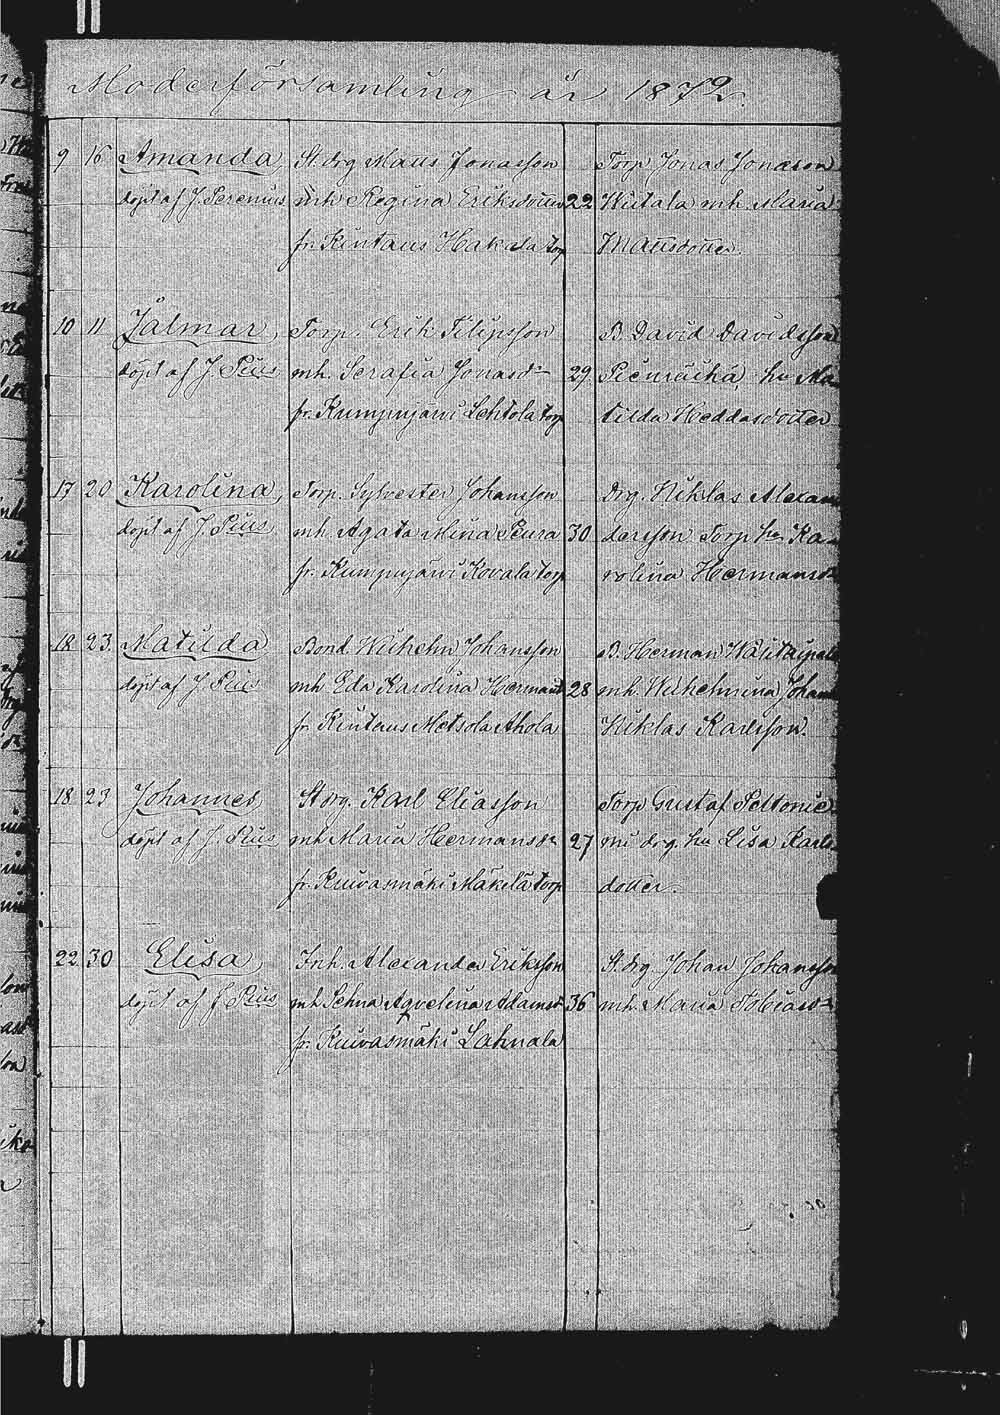 Moderförsamling år 1872.
9 16 Amanda, St. drg Maus Jonasson Torp Jonas Jonasson
döpt af J. Serenius mh Regina Eriksdotter 22 Wiitala mh. Maria
fr. Kintaus Hakala torp Mattsdotter.
10 11 Jalmar, Torp. Erik Filipsson B. David Davidsson
döpt af J. Pius mh. Serafia Jonasdr 29 hu Ma
fr. Kumpujärvi Lehtola torp tilda Heddasdotter
17 20 Karolina, Torp. Sylvester Johansson drg. Niklas Alexan
döpt af J. Pius mh. Agata Mina Peura 30 dersson Torp hu Ka
fr. Kumpujärvi Kovala torp rolina Hermansdr
18 23. Matilda Bond. Wilhelm Johansson B. Herman
döpt af J. Pius mh. Eda Karolina Hermansd 28 mh. Wilhelmina Johans
fr. Kintaus Metsola Ahola Niklas Karlsson.
18 23 Johannes St. drg. Karl Eliasson Torp Gustaf Peltonie
döpt af J. Pius mh Maria Hermansdr 27 mi drg. hu Lisa Karls
fr. Kuivasmäki Mäkelä torp dotter.
22 30 Elisa, Inh. Alexander Eriksson St. drg Johan Johansson
döpt af J Pius mh. Selma Aqvelina Adamsd 36 mh. Maria Tobiasdr
fr. Kuivasmäki Lahnala